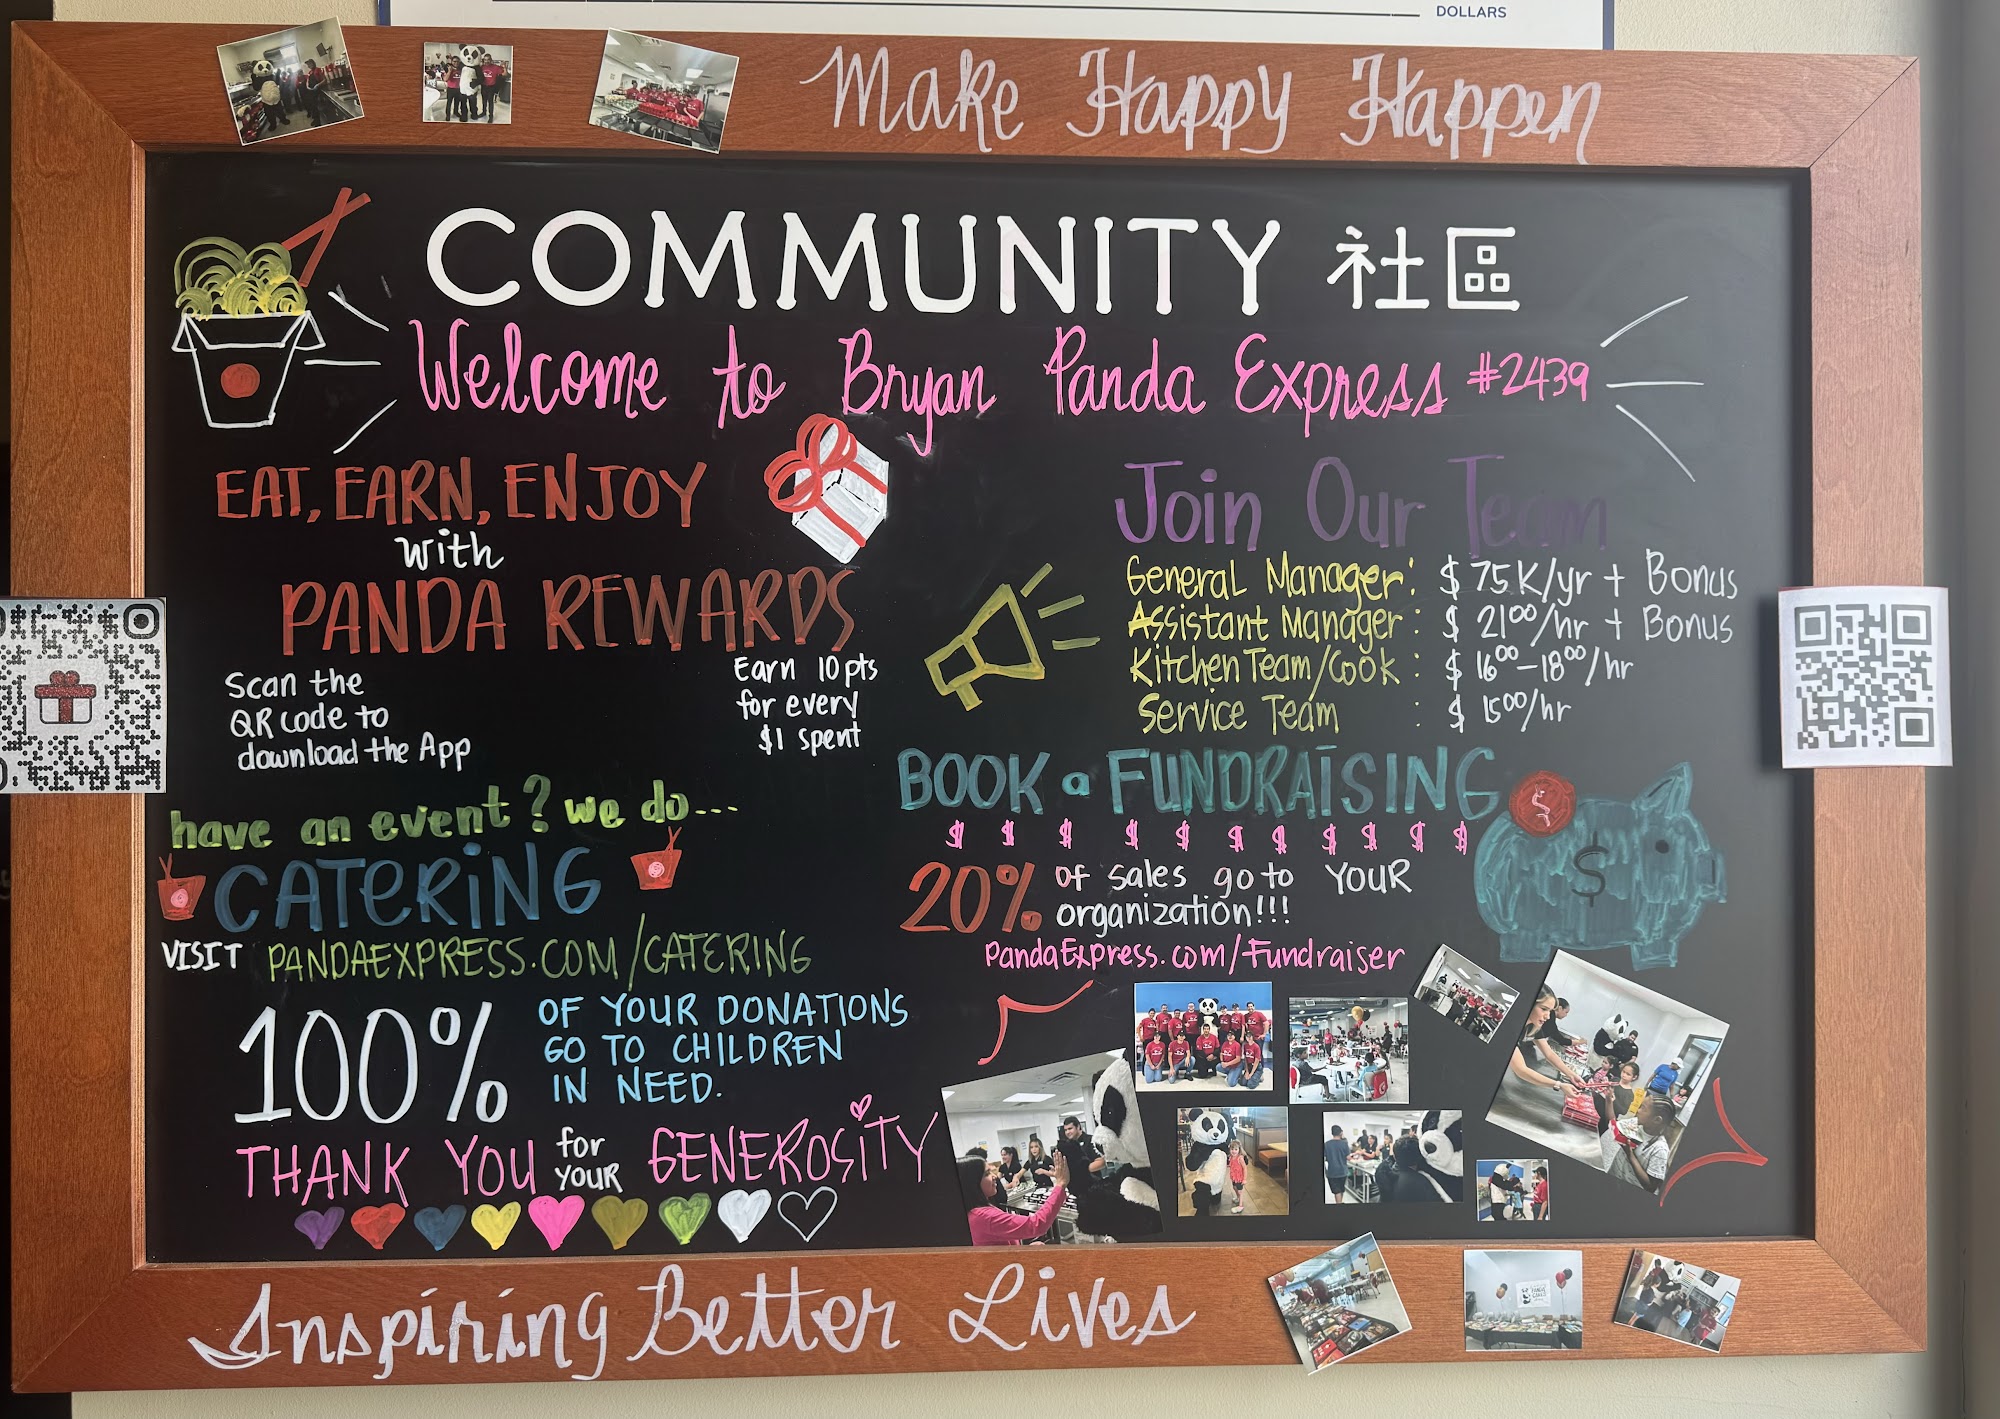 DOLLARS
Make Happy Happen
COMMUNITY 社區
Welcome to Bryan Panda Express #2439
EAT, EARN, ENJOY
with
PANDA REWARDS
Scan the
QR code to
download the App
Earn 10pts
for every
$1 spent
Join Our Team
General Manager: $75K/yr + Bonus
Assistant Manager: $21⁰⁰/hr + Bonus
Kitchen Team/Cook: $16⁰⁰-18⁰⁰/hr
Service Team : $15⁰⁰/hr
have an event? we do...
CATERING
VISIT PANDAEXPRESS.COM/CATERING
BOOK a FUNDRAISING
$ $ $ $ $ $ $ $ $ $ $
20% of sales go to YOUR
organization!!!
PandaExpress.com/Fundraiser
$
$
100% OF YOUR DONATIONS
GO TO CHILDREN
IN NEED.
THANK YOU for YOUR GENEROSITY
Inspiring Better Lives